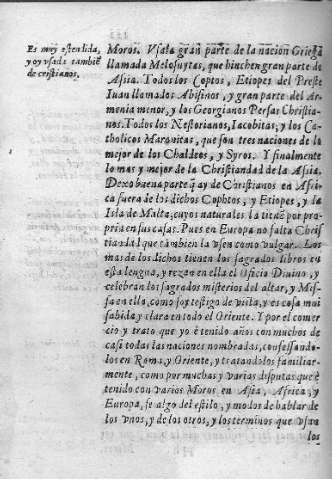 Es muy estendida,
y oy usada tambiẽ
de cristianos.
Moros. Vsala gran parte de la nacion Griega
llamada Melosuytas, que hinchen gran parte de
Assia. Todos los Coptos, Etiopes del Preste
Iuan llamados Abisinos, y gran parte del Ar-
menia menor, y los Georgianos Persas Christia-
nos. Todos los Nestorianos, Iacobitas; y los Ca-
tholicos Maronitas, que son tres naciones de lo
mejor de los Chaldeos, y Syros. Y finalmente
lo mas y mejor de la Christiandad de la Assia.
Dexo buena parte q̃ ay de Christianos en Afri-
ca fuera de los dichos Cophtos, y Etiopes, y la
Isla de Malta, cuyos naturales la tienẽ por pro-
pria en sus casas. Pues en Europa no falta Chris
tiandad que tambien la usen como vulgar. Los
mas de los dichos tienen los sagrados libros en
esta lengua, y rezan en ella el Oficio Diuino, y
celebran los sagrados misterios del altar, y Mis-
sa en ella, como soy testigo de vista, y es cosa mui
sabida y clara en todo el Oriente. Y por el comer
cio y trato que yo è tenido años con muchos de
casi todas las naciones nombradas, confessando-
los en Roma, y Oriente, y tratandolos familiar-
mente, como por muchas y varias disputas que è
tenido con varios Moros en Asia, Africa, y
Europa, se algo del estilo, y modos de hablar de
los vnos, y de los otros, y los terminos que vsan
los